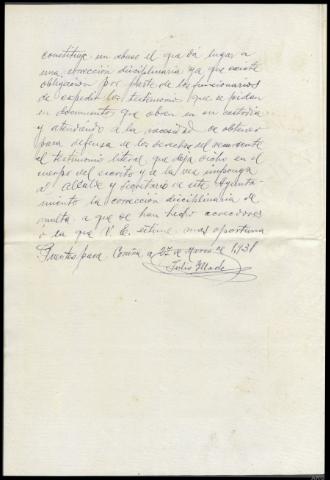 constituye un abuso el que dá lugar a
una corrección disciplinaria ya que existe
obligacion por parte de los funcionarios
de expedir los testimonios que se pidan
en documentos que obran en su custodia
y atendiendo a la necesidad de obtener
para defensa de los derechos del recurrente
el testimonio literal que deja dicho en el
cuerpo del escrito y a la vez imponga
al Alcalde y Secretario de este Ayunta
miento la corrección disciplinaria de
multa a que se han hecho acreedores
o la que V. E. estime mas oportuna
Puentes para Coruña a 27 de de 1.938
Julio